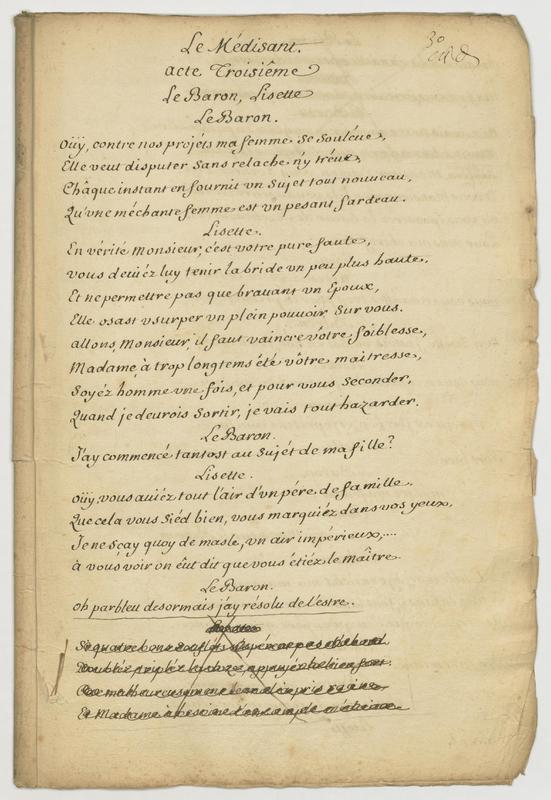 30
Le Médisant.
acte Troisiême
Le Baron, Lisette
Le Baron.
Oüy, contre nos projéts ma femme se souléue,
Elle veut disputer sans relache n'y tréue,
Châque instant en fournit vn sujet tout nouueau,
Qu'vne méchante femme est vn pesant fardeau.
Lisette.
En vérité Monsieur, c'est votre pure faute,
vous deuiéz luy tenir la bride vn peu plus haute,
Et ne permettre pas que brauant vn Epoux,
Elle osast vsurper vn plein pouuoir sur vous.
allons, Monsieur, il faut vaincre vôtre foiblesse,
Madame, à trop longtems été vôtre maitresse,
Soyéz homme vne fois, et pour vous seconder,
Quand je deurois sortir, je vais tout hazarder.
Le Baron.
J'ay commencé tantost au sujét de ma fille?
Lisette.
oüy, vous auiéz tout l'air d'vn pére de famille.
Que cela vous siéd bien, vous marquiéz dans vos yeux,
Je ne sçay quoy de masle, vn air impérieux,....
à vous voir on eût dit que vous étiéz le maître.
Le Baron.
oh parbleu desormais j'ay résolu de l'estre.
Lisette
Et Madame à besoin de